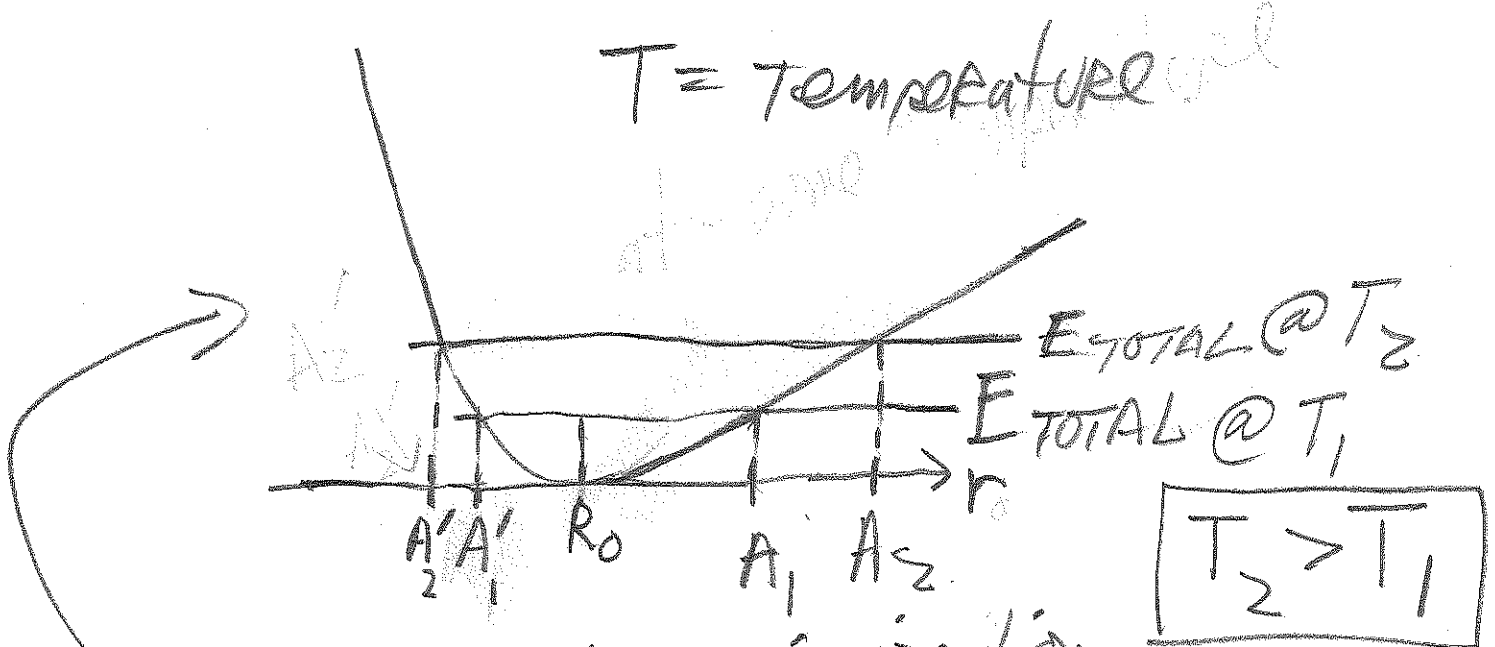 T = Temperature
E TOTAL @ T2
E TOTAL @ T1
r
A2' A1' R0 A1 A2
T2 > T1